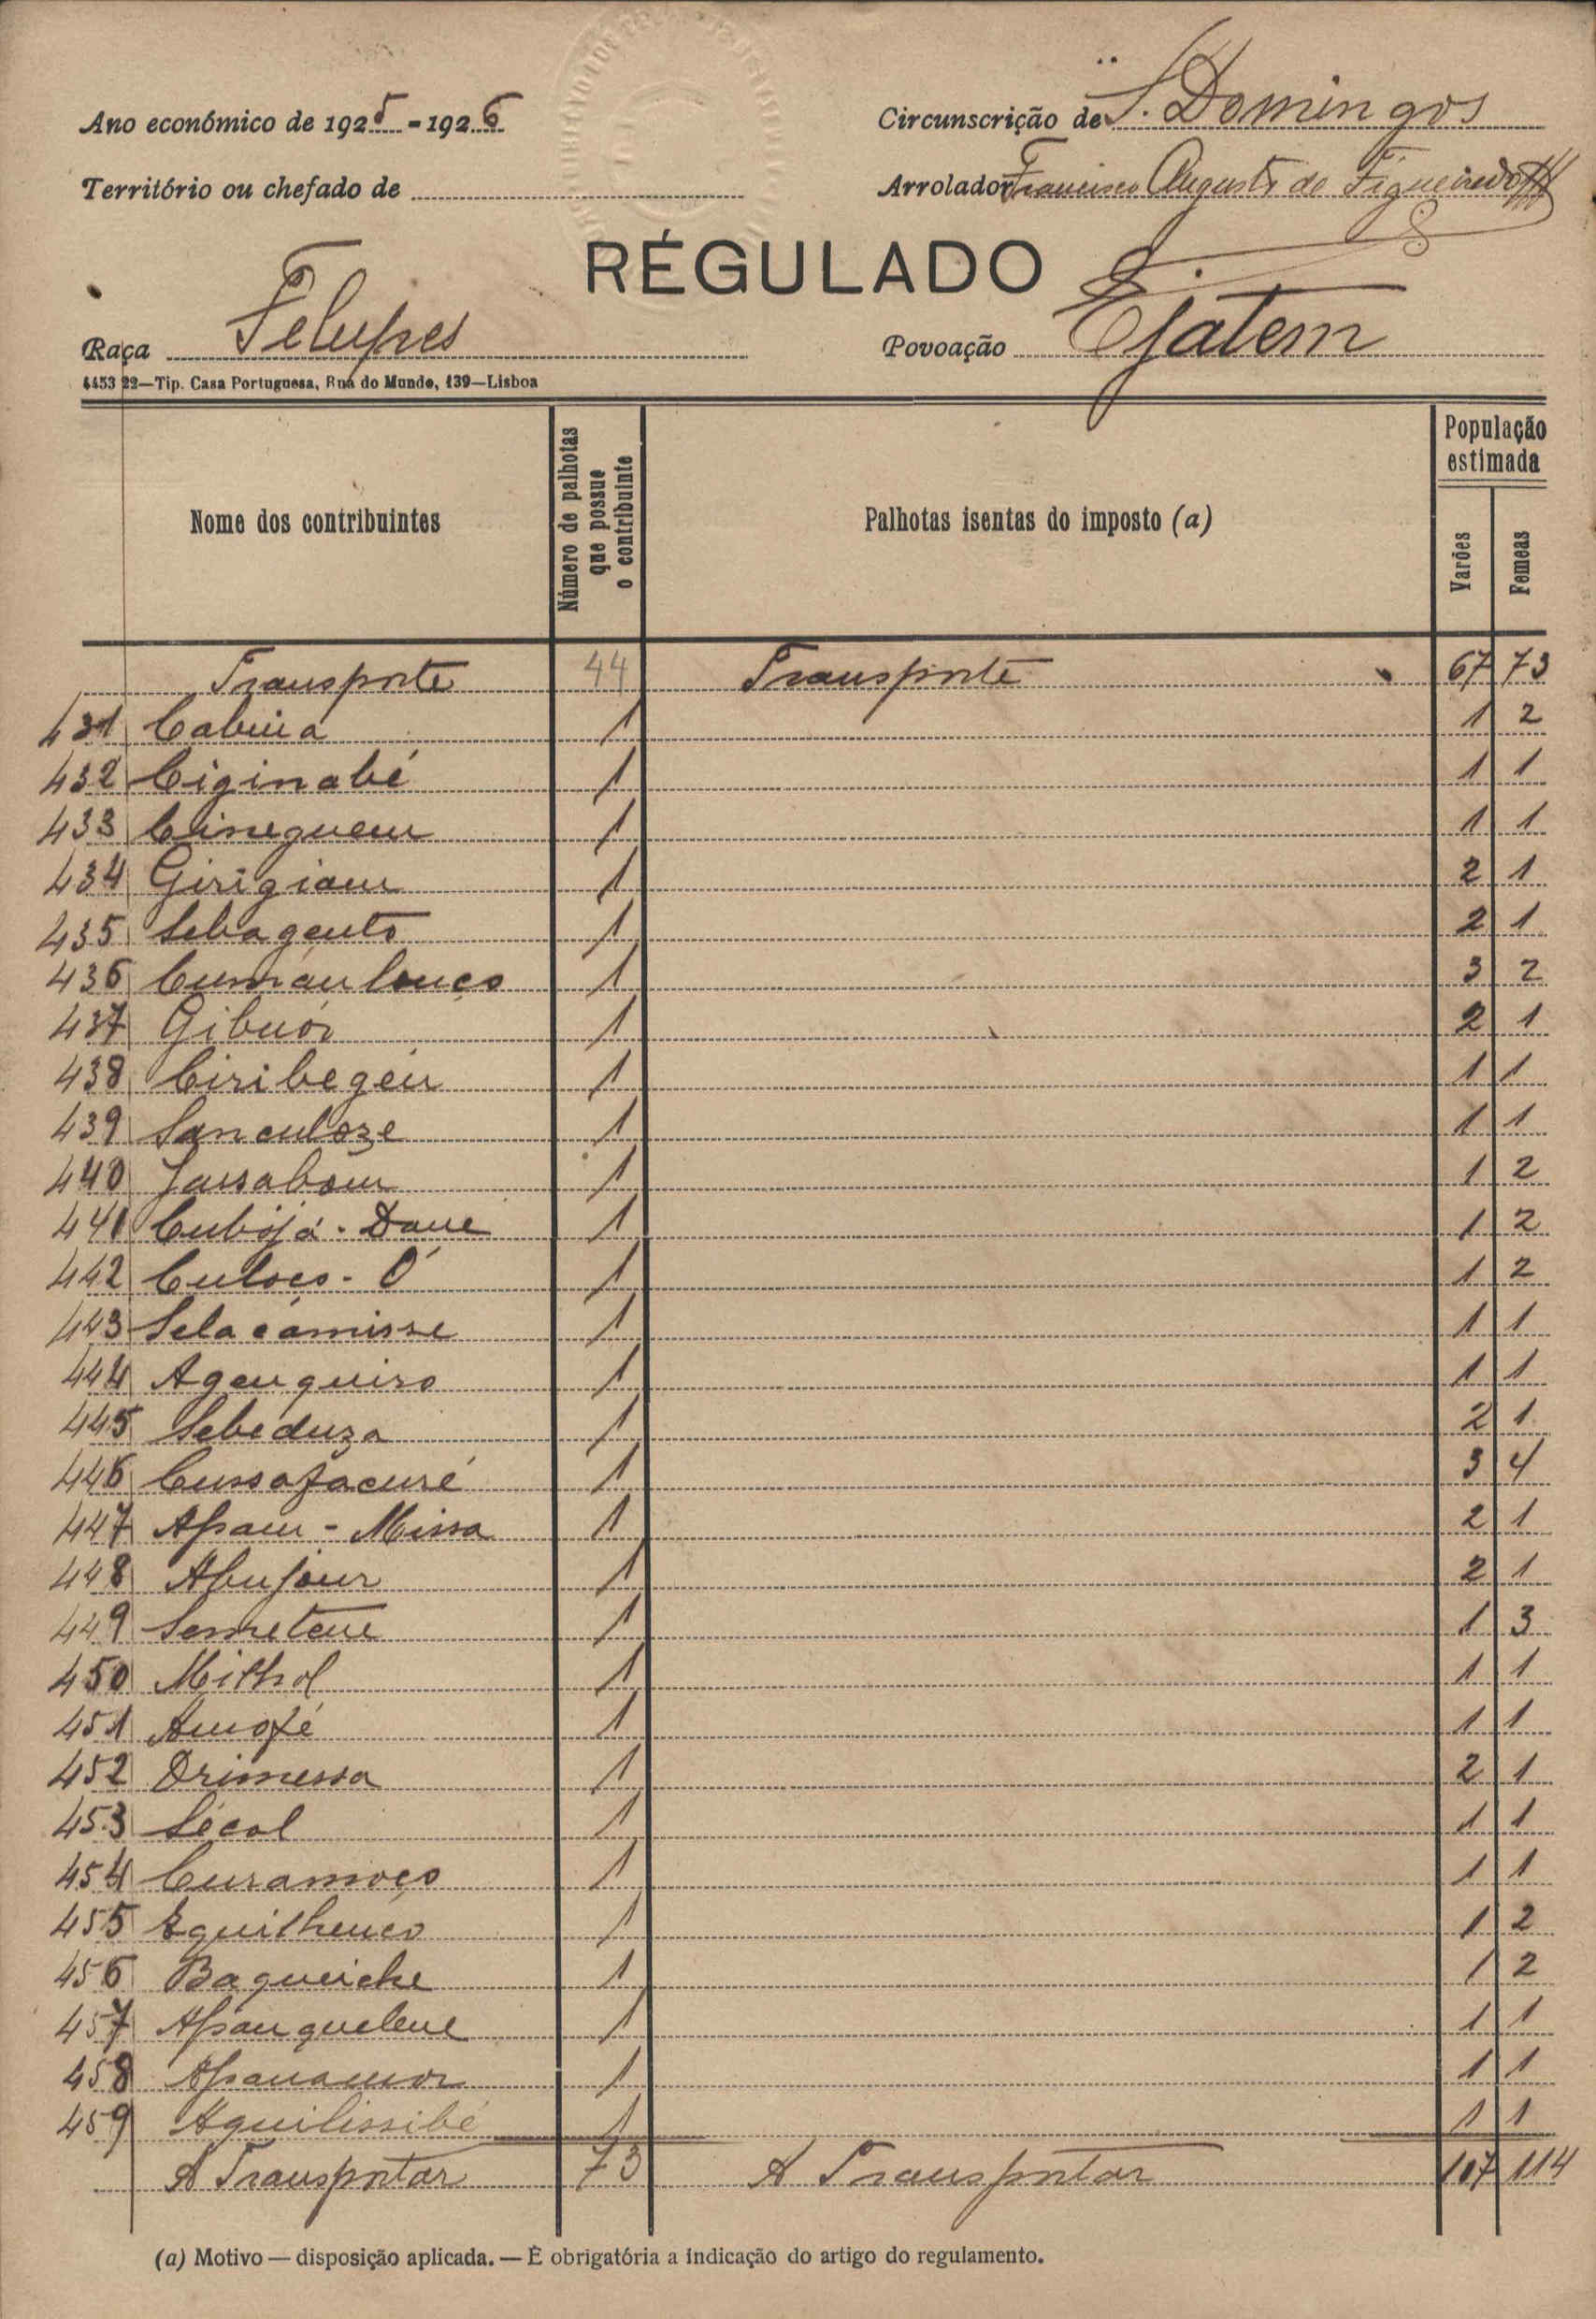 Ano económico de 1925-1926
Circunscrição de S. Domingos
Território ou chefado de
Arrolador Francisco Augusto de Figueiredo
RÉGULADO
Raça Felupes
Povoação Ejatem
4453 22—Tip. Casa Portuguesa, Rua do Mundo, 139—Lisboa
Nome dos contribuintes
Número de palhotas que possue o contribuinte
Palhotas isentas do imposto (a)
População estimada
Varões
Femeas
Transporte 44 Transporte 67 73
431 Cabuia 1 1 2
432 Ciginabé 1 1 1
433 1 1 1
434 Girigiam 1 2 1
435 Sebagento 1 2 1
436 1 3 2
437 Gibuór 1 2 1
438 Ciribegéu 1 1 1
439 Sanculoze 1 1 1
440 Jassabom 1 1 2
441 Cubojá - Dane 1 1 2
442 Culoço - Ó 1 1 2
443 Selacámisse 1 1 1
444 Agenquiro 1 1 1
445 Sebeduza 1 2 1
446 Cussafacuré 1 3 4
447 Apam - Missa 1 2 1
448 Abujour 1 2 1
449 Semetene 1 1 3
450 1 1 1
451 Amofé 1 1 1
452 Drimessa 1 2 1
453 Sécol 1 1 1
454 Curamoço 1 1 1
455 1 1 2
456 Baqueiche 1 1 2
457 Apanquelene 1 1 1
458 Apanamor 1 1 1
459 Aquilissibé 1 1 1
A Transportar 73 A Transportar 107 114
(a) Motivo — disposição aplicada. — É obrigatória a indicação do artigo do regulamento.